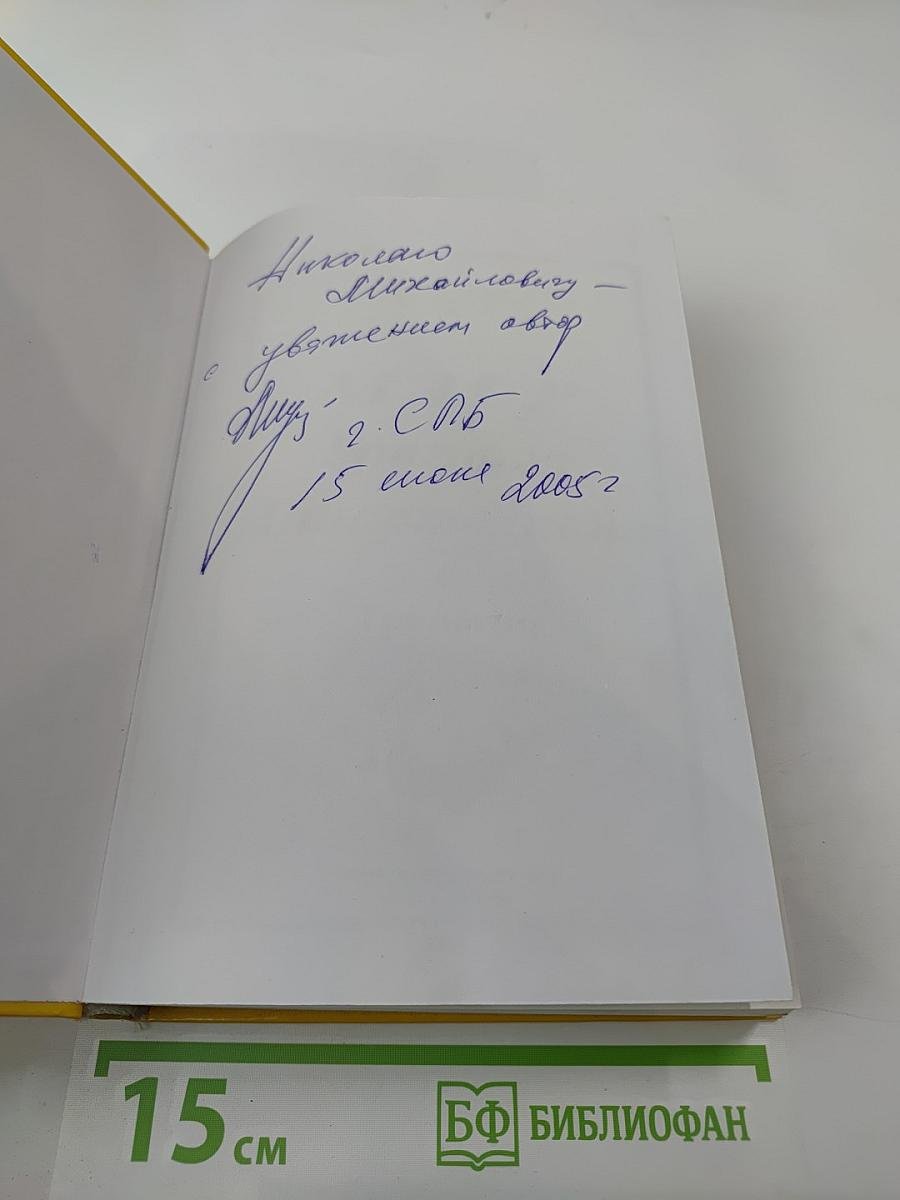 Николаю
Михайловичу –
с уважением автор
г. СПБ
15 июня 2005 г
15 см
БФ БИБЛИОФАН